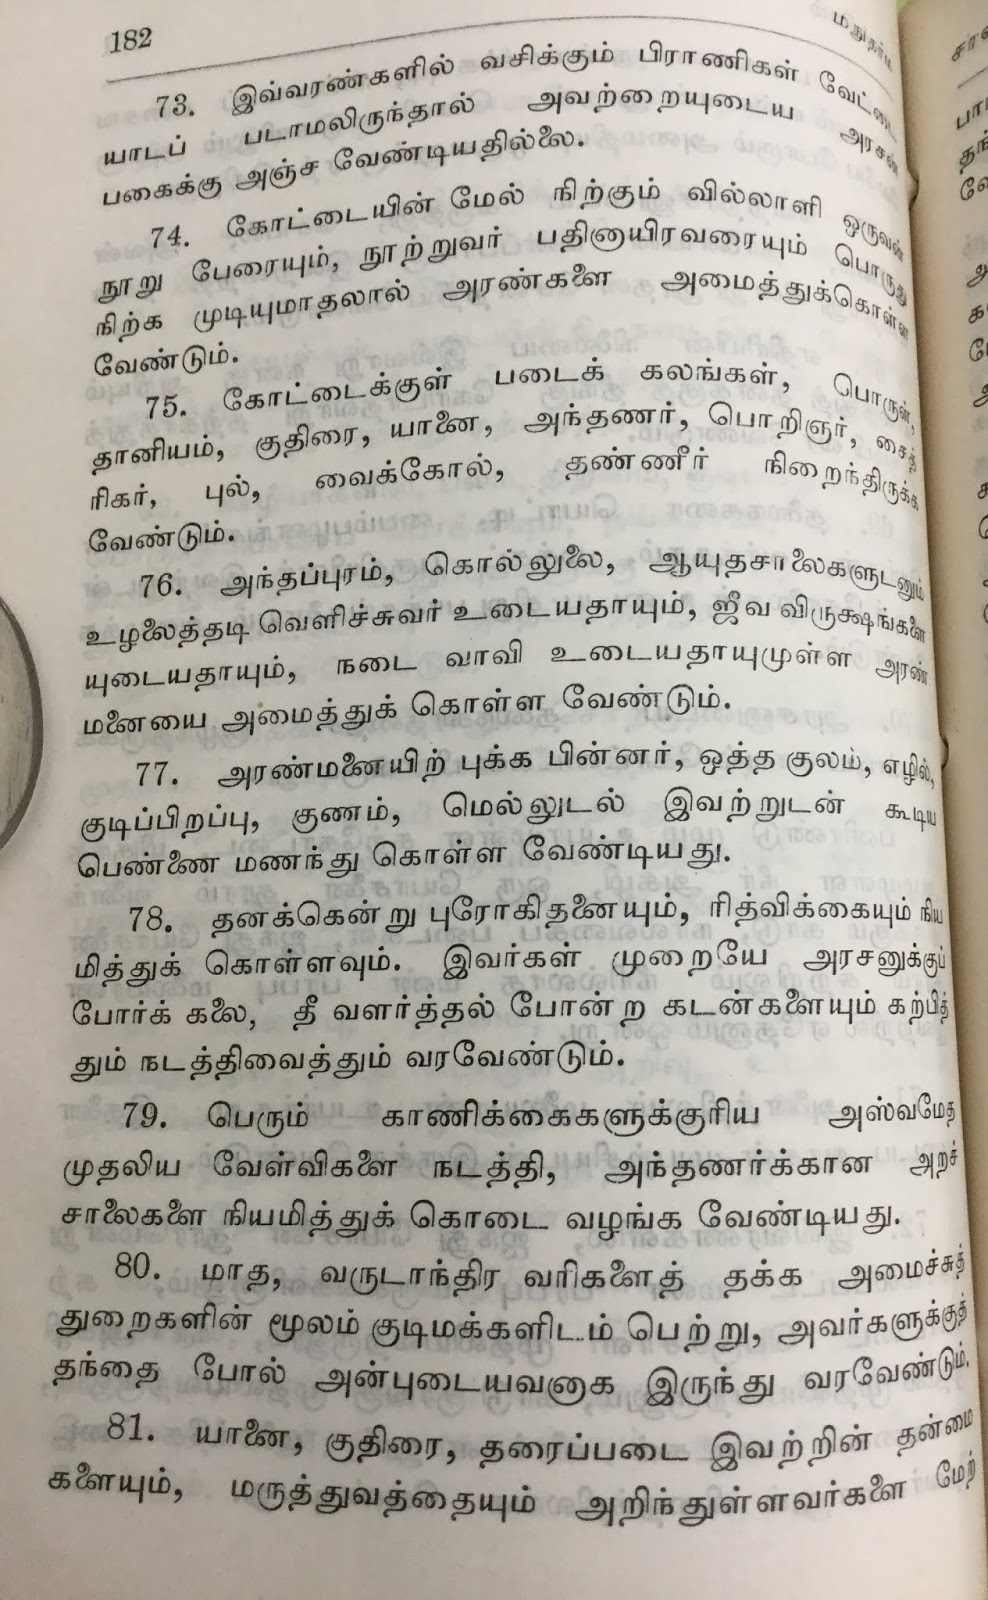 182
மநுதர்ம
73. இவ்வரண்களில் வசிக்கும் பிராணிகள் வேட்டை
யாடப் படாமலிருந்தால் அவற்றையுடைய அரசன்
பகைக்கு அஞ்ச வேண்டியதில்லை.
74. கோட்டையின் மேல் நிற்கும் வில்லாளி ஒருவன்
நூறு பேரையும், நூற்றுவர் பதினாயிரவரையும் பொருது
நிற்க முடியுமாதலால் அரண்களை அமைத்துக்கொள்ள
வேண்டும்.
75. கோட்டைக்குள் படைக் கலங்கள், பொருள்,
தானியம், குதிரை, யானை, அந்தணர், பொறிஞர், சைத்
ரிகர், புல், வைக்கோல், தண்ணீர் நிறைந்திருக்க
வேண்டும்.
76. அந்தப்புரம், கொல்லுலை, ஆயுதசாலைகளுடனும்
உழலைத்தடி வெளிச்சுவர் உடையதாயும், ஜீவ விருக்ஷங்களை
யுடையதாயும், நடை வாவி உடையதாயுமுள்ள அரண்
மனையை அமைத்துக் கொள்ள வேண்டும்.
77. அரண்மனையிற் புக்க பின்னர், ஒத்த குலம், எழில்,
குடிப்பிறப்பு, குணம், மெல்லுடல் இவற்றுடன் கூடிய
பெண்ணை மணந்து கொள்ள வேண்டியது.
78. தனக்கென்று புரோகிதனையும், ரித்விக்கையும் நிய
மித்துக் கொள்ளவும். இவர்கள் முறையே அரசனுக்குப்
போர்க் கலை, தீ வளர்த்தல் போன்ற கடன்களையும் கற்பித்
தும் நடத்திவைத்தும் வரவேண்டும்.
79. பெரும் காணிக்கைகளுக்குரிய அஸ்வமேத
முதலிய வேள்விகளை நடத்தி, அந்தணர்க்கான அறச்
சாலைகளை நியமித்துக் கொடை வழங்க வேண்டியது.
80. மாத, வருடாந்திர வரிகளைத் தக்க அமைச்சுத்
துறைகளின் மூலம் குடிமக்களிடம் பெற்று, அவர்களுக்குத்
தந்தை போல் அன்புடையவனாக இருந்து வரவேண்டும்.
81. யானை, குதிரை, தரைப்படை இவற்றின் தன்மை
களையும், மருத்துவத்தையும் அறிந்துள்ளவர்களை மேற்